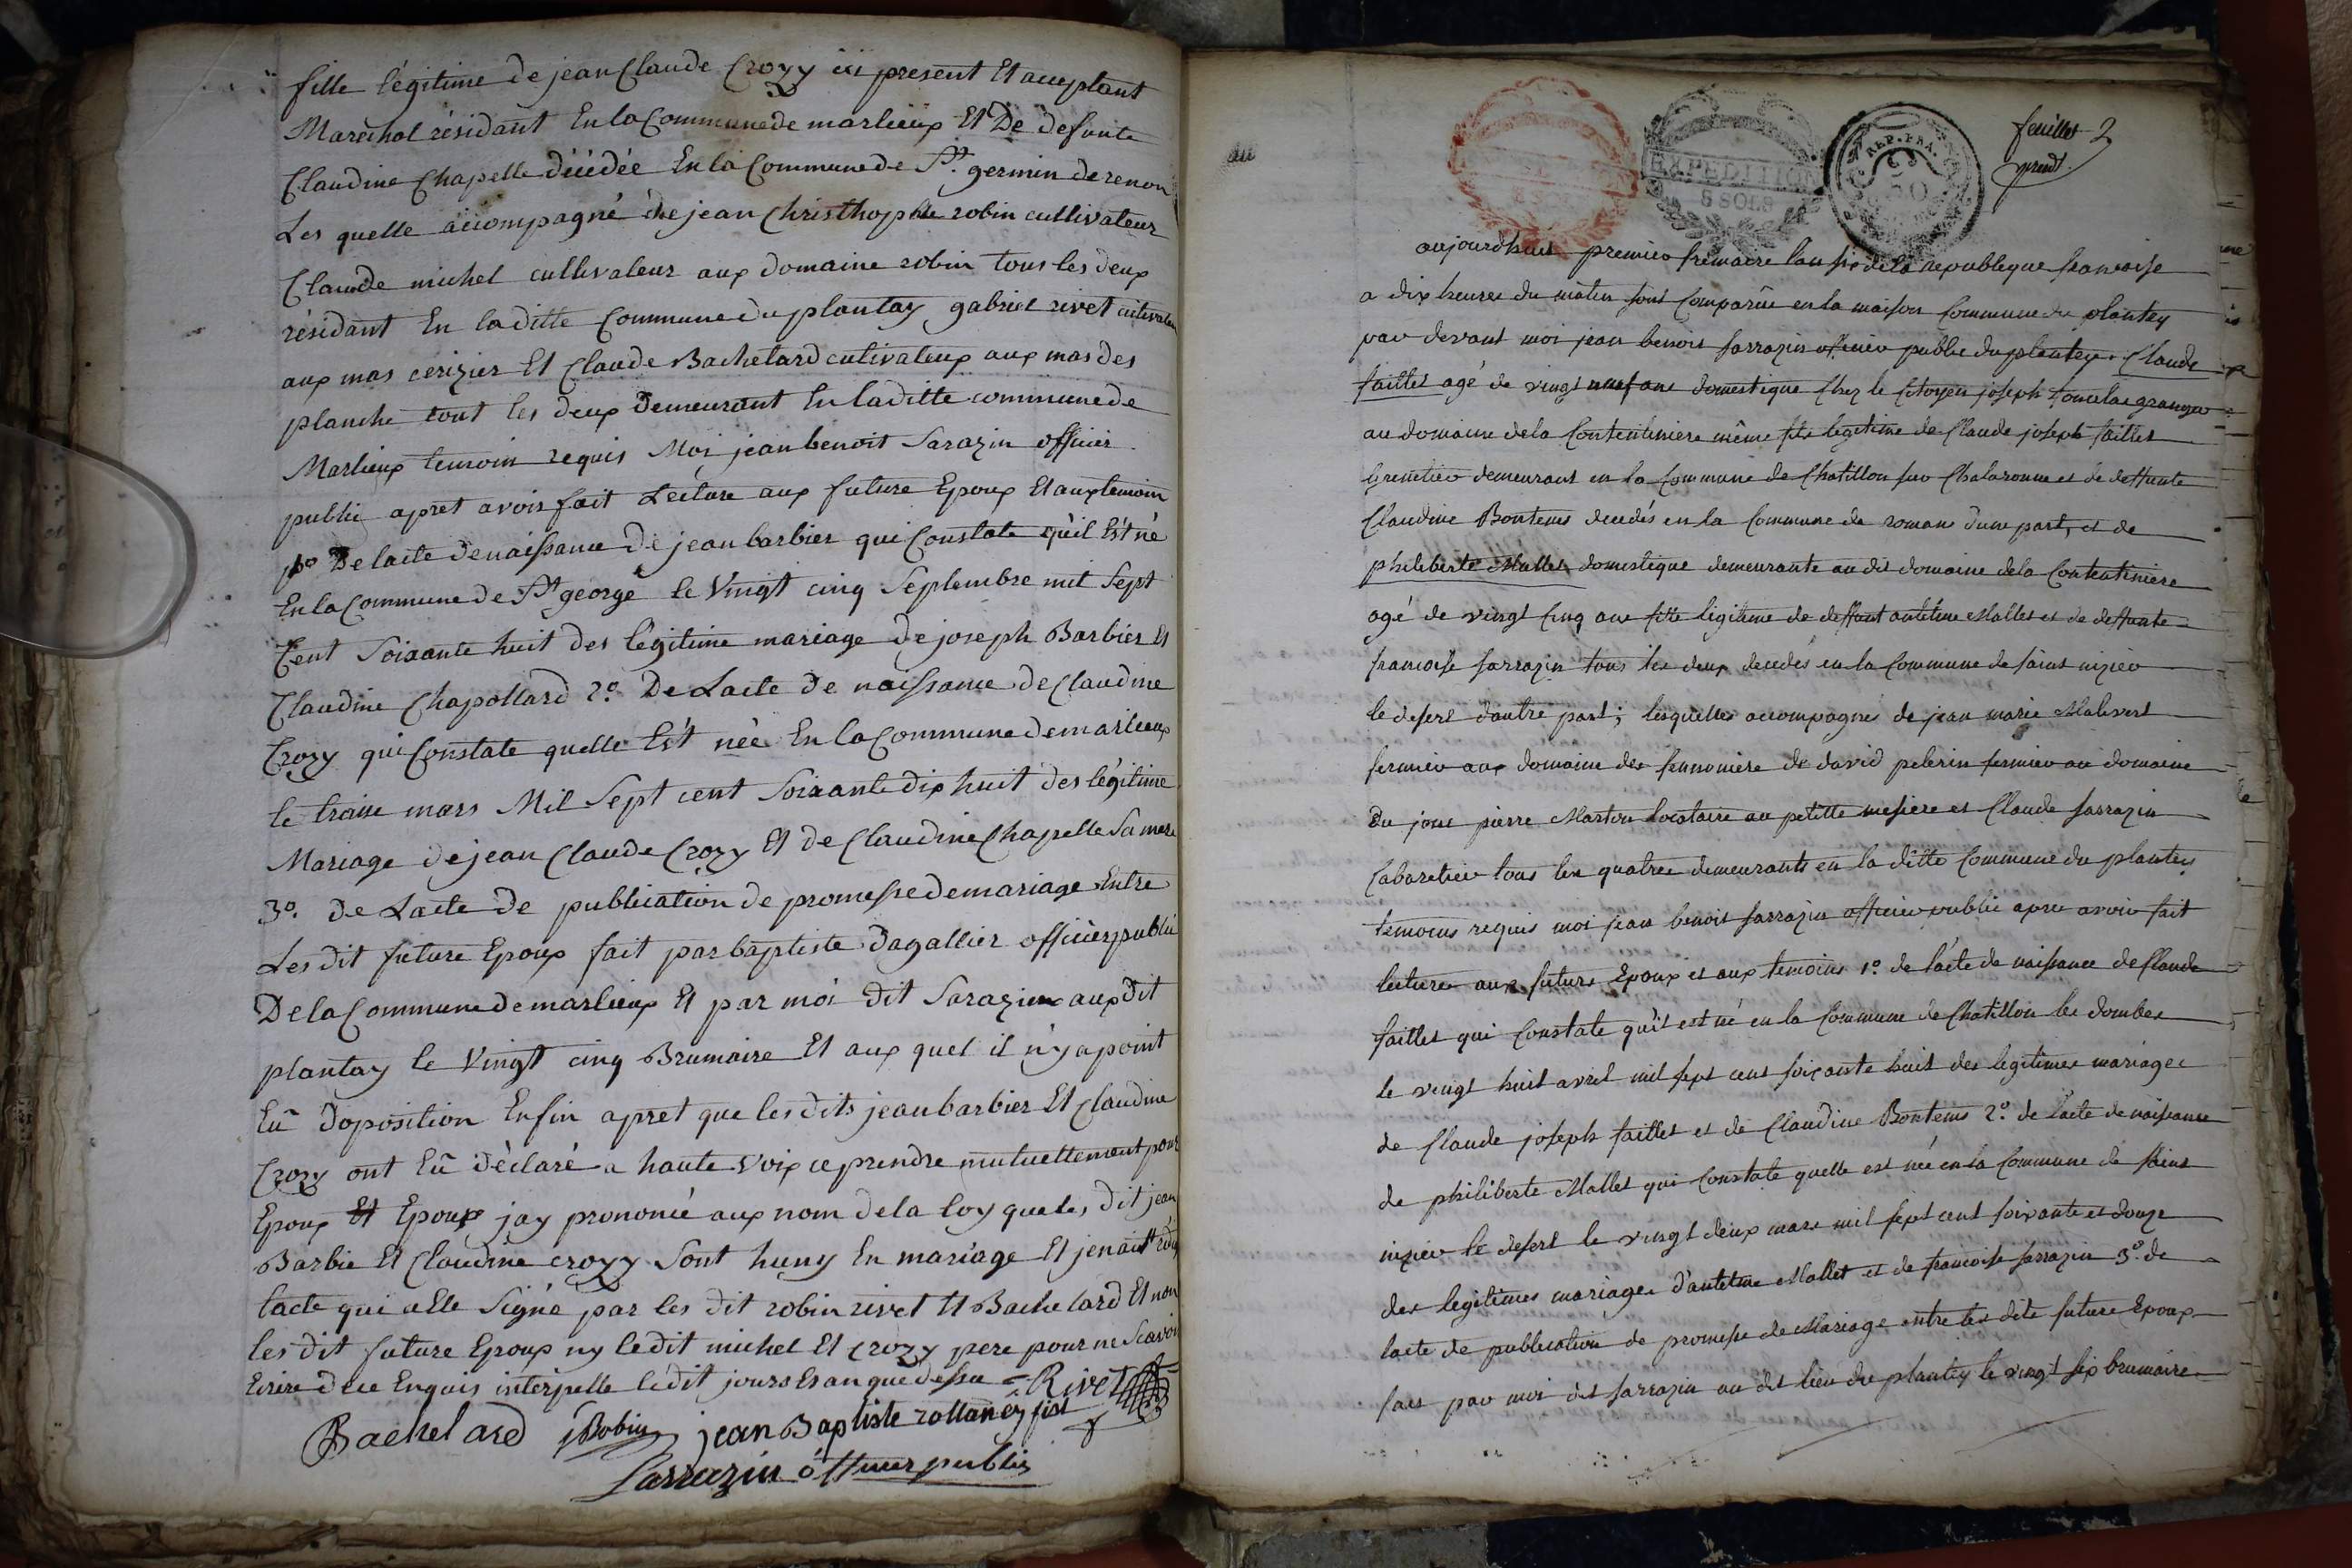 fille légitime de jean Claude Crozy ici present Et acceptant
Maréchal résidant En la Commune de marlieux Et De defunte
Claudine Chapelle décédée En la Commune de St. germin de renon
Les quelle accompagné de jean Christhophle robin cultivateur
Claude michel cultivateur aux domaine robin tous les deux
résidant En la ditte Commune du plantay gabriel rivet cultivateur
aux mas cerizier Et Claude Bachelard cultivateux aux mas des
planche tout les deux Demeurant En la ditte commune de
Marlieux temoin requis Moi jean benoit Sarazin officier
public apret avoir fait Lecture aux future Epoux Et aux temoin
1o De lacte de naissance De jean barbier qui Constate quil Est né
En la Commune de St george le Vingt cinq Septembre mil Sept
Cent Soixante huit des légitime mariage de joseph Barbier Et
Claudine Chapollard 2o. De Lacte De naissance de Claudine
Crozy qui Constate quelle Est née En la Commune de marlieux
le traise mars Mil Sept cent Soixante dix huit des légitime
Mariage de jean Claude Crozy Et de Claudine Chapelle Sa mere
3o. de Lacte de publication de promesse de mariage Entre
Les dit future Epoux fait par baptiste Dagallier officier public
De la Commune de marlieux Et par moi dit Sarazin aux dit
plantay le Vingt cinq Brumaire Et aux quel il n'y a point
Eû Doposition Enfin apret que les dits jean barbier Et Claudine
Crozy ont Eû déclaré a haute Voix ce prendre mutuellement pour
Epoux Et Epoux jay prononcé aux nom de la loy que les dit jean
Barbie Et Claudine crozy Sont huny En mariage Et jen ait
lacte qui a Ete Signé par les dit robin rivet Et Bachelard Et non
les dit future Epoux ny ledit michel Et crozy pere pour ne Scavoir
Ecrire de ce Enquis interpelle ledit jours Et an que dessu = Rivet
Bachelard jRobin jean Baptiste fist
Sarrazin officier public
feuillet 2
EXPEDITION
8 SOLS
REP. FRA.
50
aujourdhui premier frimaire lan six de la republeque francoise
a dix heures du matin sont Comparûe en la maison Commune du plantey
par devant moi jean benois sarrazin officier public du plantey. Claude
faillet agé de vingt neuf ans domestique Chez le Citoyen joseph granger
au domaine de la Contentiniere même fils legitime de Claude joseph faillet
Grenetier demeurant en la Commune de Chatillon sur Chalaronne et de deffunte
Claudine Bontems decedés en la Commune de romans dune part, et de
philiberte Mallet domestique demeurante au dit domaine de la Contentiniere
agé de vingt Cinq ans fille legitime de deffunt antelme Mallet et de deffunte
francoise sarrazin tous les deux decedés en la Commune de saint nizier
le desert dautre part; lesquelles accompagnés de jean marie Malivert
fermier aux domaine des fennoniere de david pelerin fermier au domaine
Du jour pierre Marton locataire au petitte mesiere et Claude sarrazin
Cabaretier tous les quatres demeurants en la ditte Commune du plantey
temoins requis moi jean benois sarrazin officier public apres avoir fait
lecture aux future Epoux et aux temoins 1o. de lacte de naissance de Claude
faillet qui Constate qu'il est né en la Commune de Chatillon les dombes
le vingt huit avril mil sept cens soixante huit des legitimes mariages
de Claude joseph faillet et de Claudine Bontems 2o. de l'acte de naissance
de philiberte Mallet qui Constate quelle est née en la Commune de saint
nizier le desert le vingt deux mars mil sept cent soixante et douze
des legitimes mariages d'antelme Mallet et de francoise sarrazin 3o. de
lacte de publication de promesse de Mariage entre les dits future Epoux
fait par moi dit sarrazin au dit lieu du plantey le vingt six brumaire